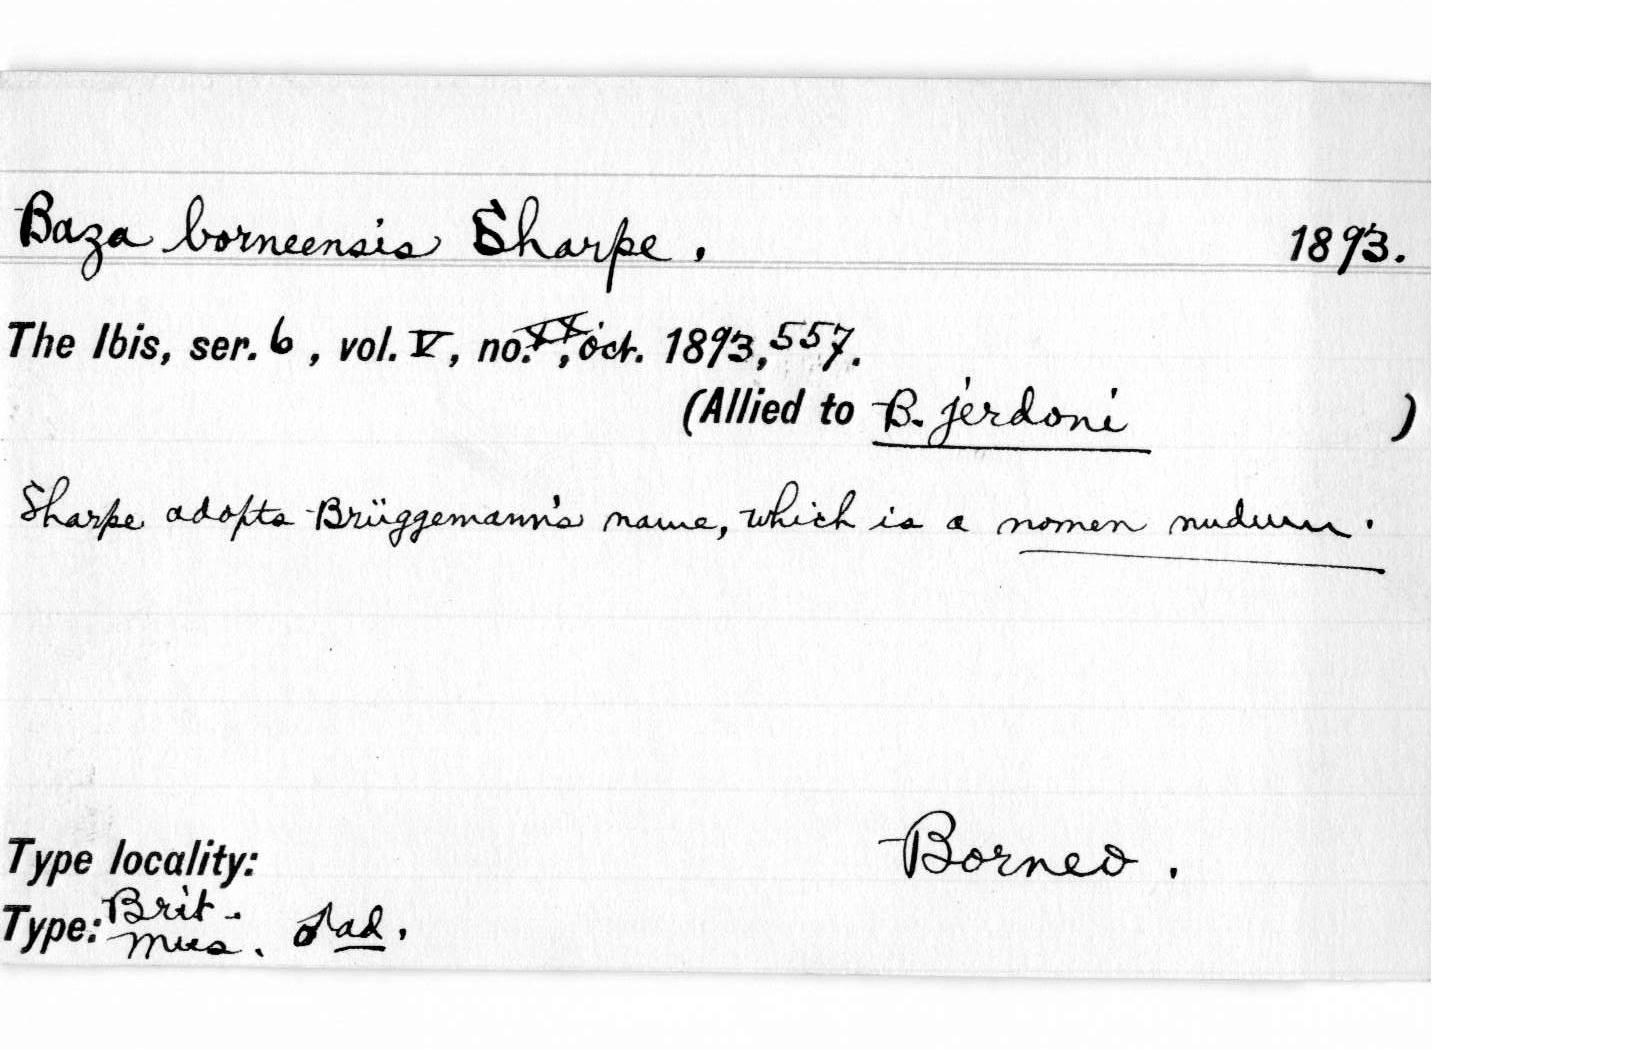 Baza borneensis Sharpe. 1893.
The Ibis, ser. 6, vol. V, no. XX, Oct. 1893, 557.
(Allied to B. jerdoni )
Sharpe adopts Brüggemann's name, which is a nomen nudum.
Type locality: Borneo.
Type: Brit. Mus. ♂ ad.